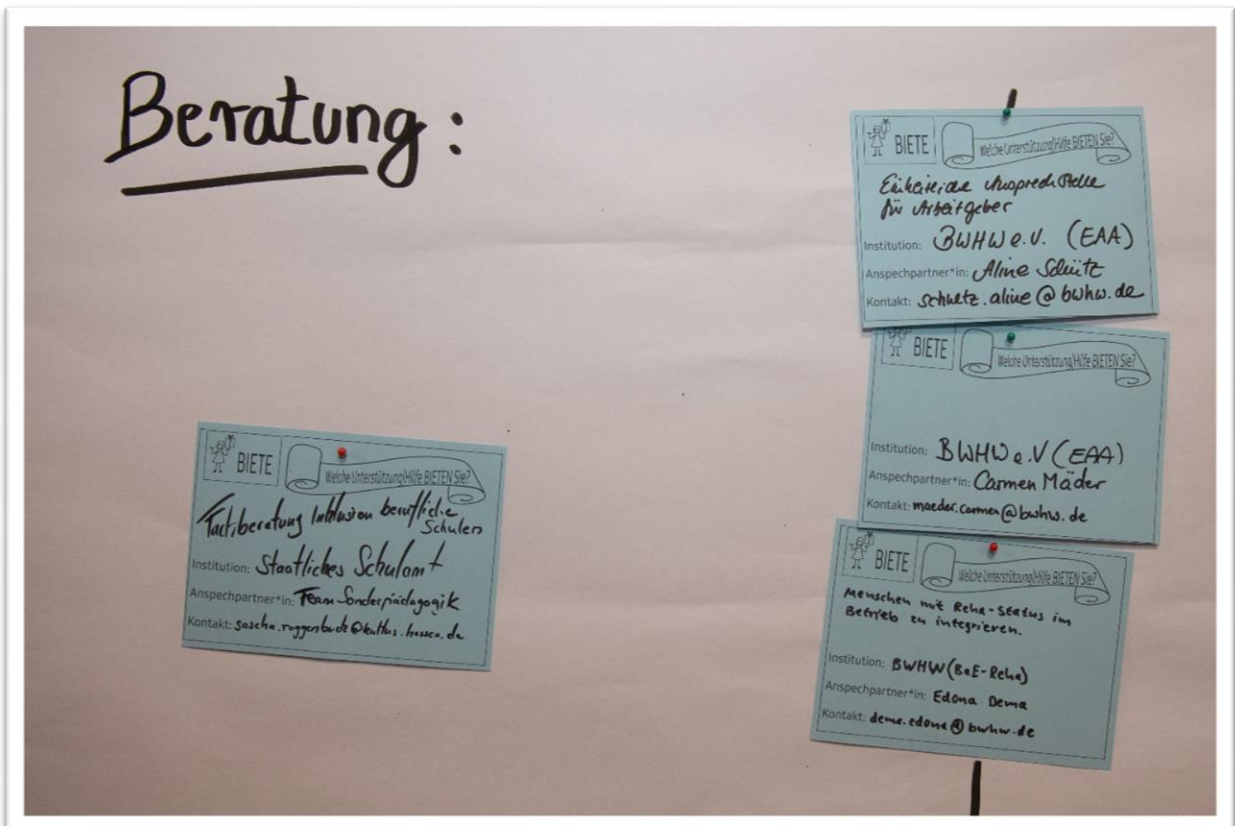 Beratung:
BIETE
Welche Unterstützung/Hilfe BIETEN Sie?
Fachberatung Inklusion berufliche
Schulen
Institution: Staatliches Schulamt
Anspechpartner*in: Team Sonderpädagogik
Kontakt:
BIETE
Welche Unterstützung/Hilfe BIETEN Sie?
Einheitliche Ansprechstelle
für Arbeitgeber
Institution: BWHW e.V. (EAA)
Anspechpartner*in: Aline Schütz
Kontakt: schuetz.aline@bwhw.de
BIETE
Welche Unterstützung/Hilfe BIETEN Sie?
Institution: BWHW e.V (EAA)
Anspechpartner*in: Carmen Mäder
Kontakt: maeder.carmen@bwhw.de
BIETE
Welche Unterstützung/Hilfe BIETEN Sie?
Menschen mit Reha-Status im
Betrieb zu integrieren.
Institution: BWHW (BaE-Reha)
Anspechpartner*in: Edona Dema
Kontakt: dema.edona@bwhw.de